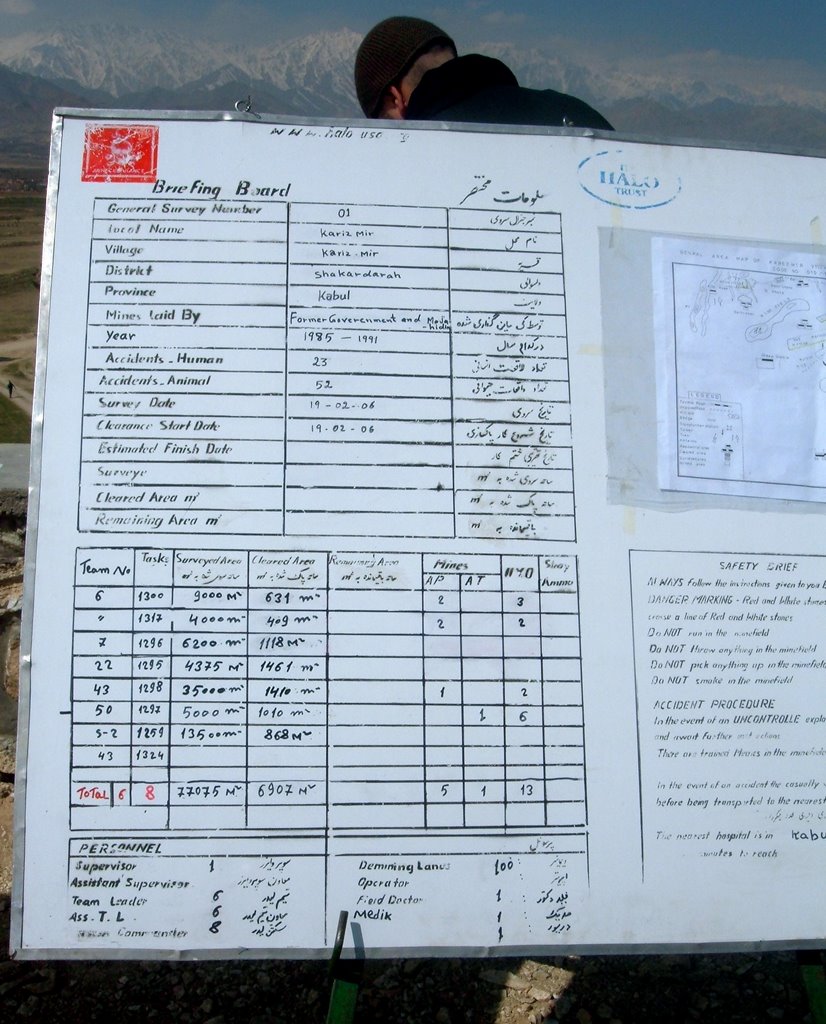 www.halo usa.
THE
HALO
TRUST
Briefing Board معلومات مختصر
General Survey Number 01 نمبر جنرال سروی
Local Name Kariz Mir نام محل
Village Kariz-Mir قریه
District Shakardarah ولسوالی
Province Kabul ولایت
Mines Laid By Former Government and Mojahidin توسط کی ماین گذاری شده
Year 1985 - 1991 در کدام سال
Accidents - Human 23 تعداد واقعات انسانی
Accidents - Animal 52 تعداد واقعات حیوانی
Survey Date 19-02-06 تاریخ سروی
Clearance Start Date 19-02-06 تاریخ شروع کار پاکسازی
Estimated Finish Date تاریخ تقریبی ختم کار
Surveye ساحه سروی شده به m²
Cleared Area m² ساحه پاک شده به m²
Remaining Area m² باقیمانده به m²
GENERAL AREA MAP OF
LEGEND
Team No Task Surveyed Area Cleared Area Remaining Area Mines UXO Stray Ammo
AP AT
6 1300 9000 M² 631 m² 2 3
" 1317 4000 m² 409 m² 2 2
7 1296 6200 m² 1118 M²
22 1295 4375 M² 1461 m²
43 1298 35000 m² 1410 m² 1 2
50 1297 5000 m² 1010 m² 1 6
S-2 1259 13500 m² 868 M²
43 1324
Total 6 8 77075 M² 6907 M² 5 1 13
PERSONNEL پرسونل
Supervisor 1 سوپروایزر
Assistant Supervisor معاون سوپروایزر
Team Leader 6 تیم لیدر
Ass. T. L 6 معاون تیم لیدر
Commander 8 سکشن لیدر
Demining Lanes 100
Operator
Field Doctor 1 فیلد دکتور
Medik 1 مدیک
1 دریور
SAFETY BRIEF
ALWAYS follow the instructions given to you
DANGER MARKING - Red and White stones
cross a line of Red and White stones
Do NOT run in the minefield
Do NOT throw anything in the minefield
Do NOT pick anything up in the minefield
Do NOT smoke in the minefield
ACCIDENT PROCEDURE
In the event of an UNCONTROLLE explo
and await further instructions
There are trained Medics in the minefield
In the event of an accident the casualty
before being transported to the nearest
The nearest hospital is in Kabu
minutes to reach